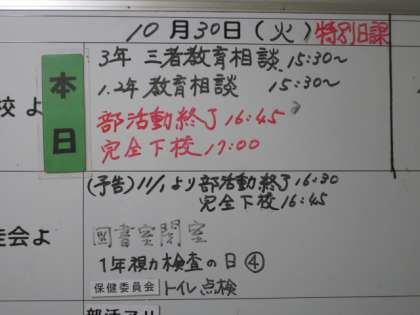 10月30日(火)特別日課
本日
3年 三者教育相談 15:30〜
1.2年 教育相談 15:30〜
部活動終了 16:45
完全下校 17:00
校よ
(予告) 11/1より部活動終了 16:30
完全下校 16:45
会よ
図書室開室
1年視力検査の日④
保健委員会 トイレ点検